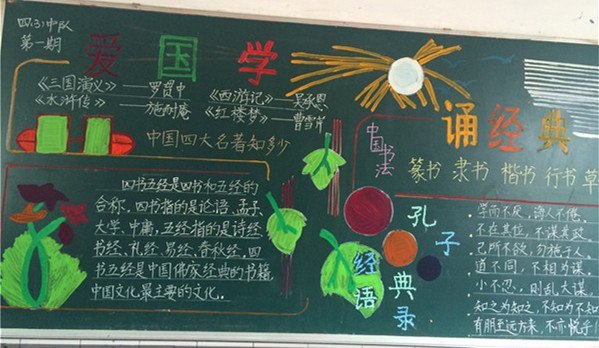 四(3)中队
第一期
爱国学
《三国演义》——罗贯中
《水浒传》——施耐庵
《西游记》——吴承恩
《红楼梦》——曹雪芹
中国四大名著知多少
四书五经是四书和五经的
合称。四书指的是论语、孟子、
大学、中庸,五经指的是诗经、
书经、礼经、易经、春秋经,四
书五经是中国儒家经典的书籍,
中国文化最主要的文化。
诵经典
中国书法
篆书 隶书 楷书 行书 草
孔子
经典
语录
学而不厌,诲人不倦。
不在其位,不谋其政。
己所不欲,勿施于人。
道不同,不相为谋。
小不忍,则乱大谋。
知之为知之,不知为不知
有朋至远方来,不亦悦乎!